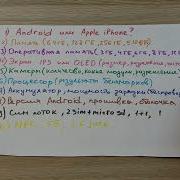 1) Android или Apple iPhone?
2) Память (64гб, 128гб, 256гб, 512гб)
3) Оперативная память (3гб, 4гб, 6гб, 8гб,
4) Экран IPS или OLED (размер,
5) Камеры (количество, какие модули, разрешение)
6) Процессор (
7) Аккумулятор, мощность зарядки
8) Версия Android, прошивка, оболочка
9) Сим лоток, 2sim+microsd, 1+1, 1
10) NFC, 5G, 3.5 jack